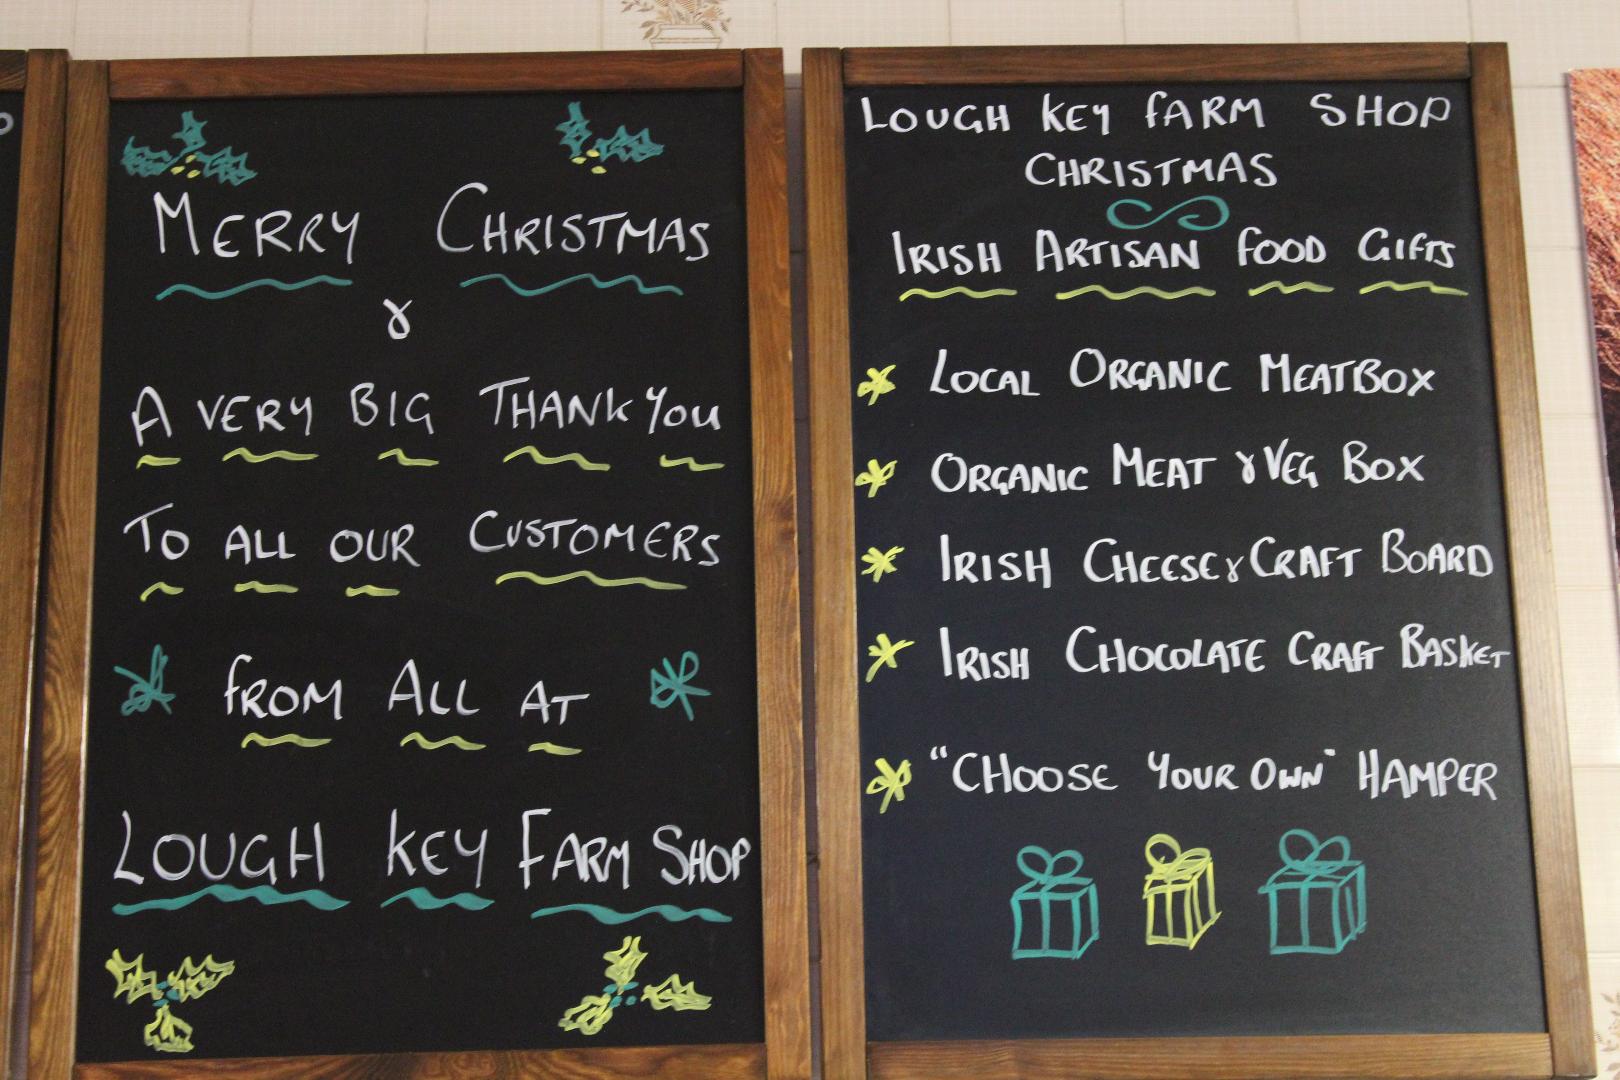 MERRY CHRISTMAS
&
A VERY BIG THANK YOU
TO ALL OUR CUSTOMERS
FROM ALL AT
LOUGH KEY FARM SHOP
LOUGH KEY FARM SHOP
CHRISTMAS
IRISH ARTISAN FOOD GIFTS
LOCAL ORGANIC MEATBOX
ORGANIC MEAT & VEG BOX
IRISH CHEESE & CRAFT BOARD
IRISH CHOCOLATE CRAFT BASKET
"CHOOSE YOUR OWN" HAMPER